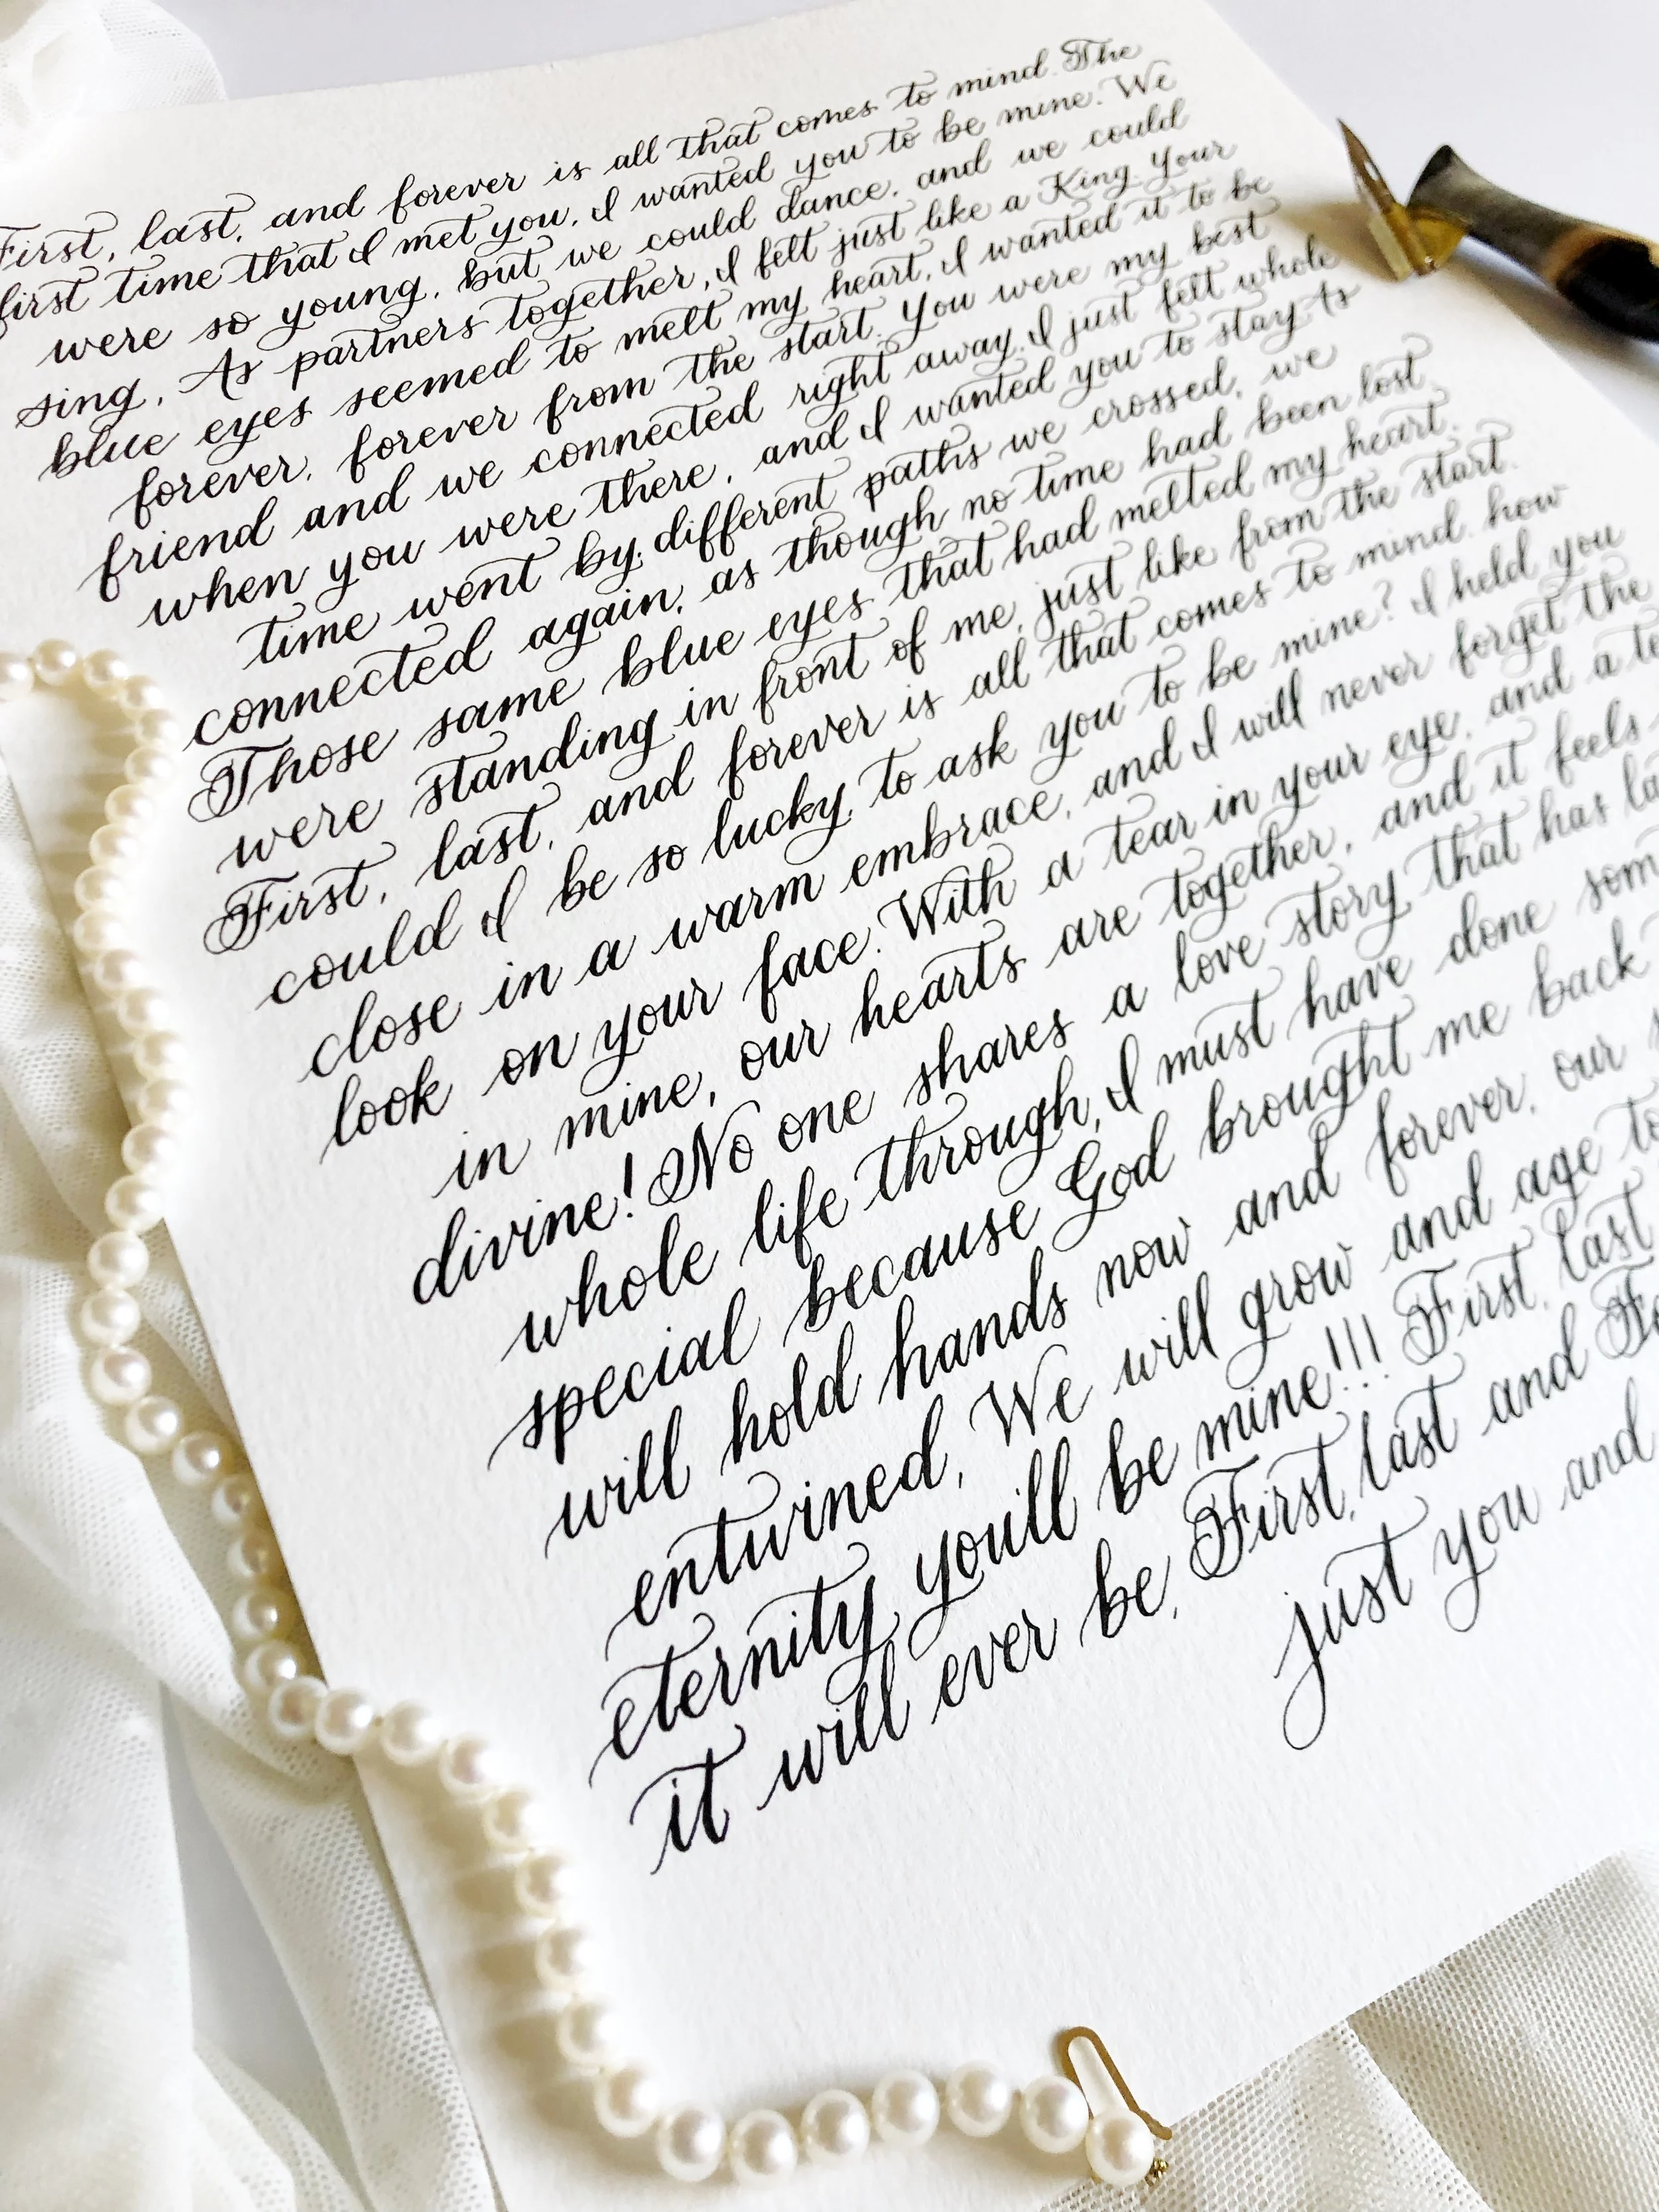 First, last, and forever is all that comes to mind. The
first time that I met you, I wanted you to be mine. We
were so young, but we could dance, and we could
sing, As partners together, I felt just like a King. Your
blue eyes seemed to melt my heart, I wanted it to be
forever, forever from the start. You were my best
friend and we connected right away, I just felt whole
when you were there, and I wanted you to stay As
time went by, different paths we crossed, we
connected again, as though no time had been lost.
Those same blue eyes that had melted my heart.
were standing in front of me, just like from the start.
First, last, and forever is all that comes to mind. how
could I be so lucky, to ask you to be mine? I held you
close in a warm embrace, and I will never forget the
look on your face. With a tear in your eye, and a
in mine, our hearts are together, and it feels
divine! No one shares a love story that has
whole life through, I must have done
special because God brought me back
will hold hands now and forever, our
entwined, We will grow and age
eternity you'll be mine!!! First, last
it will ever be, First, last and
just you and